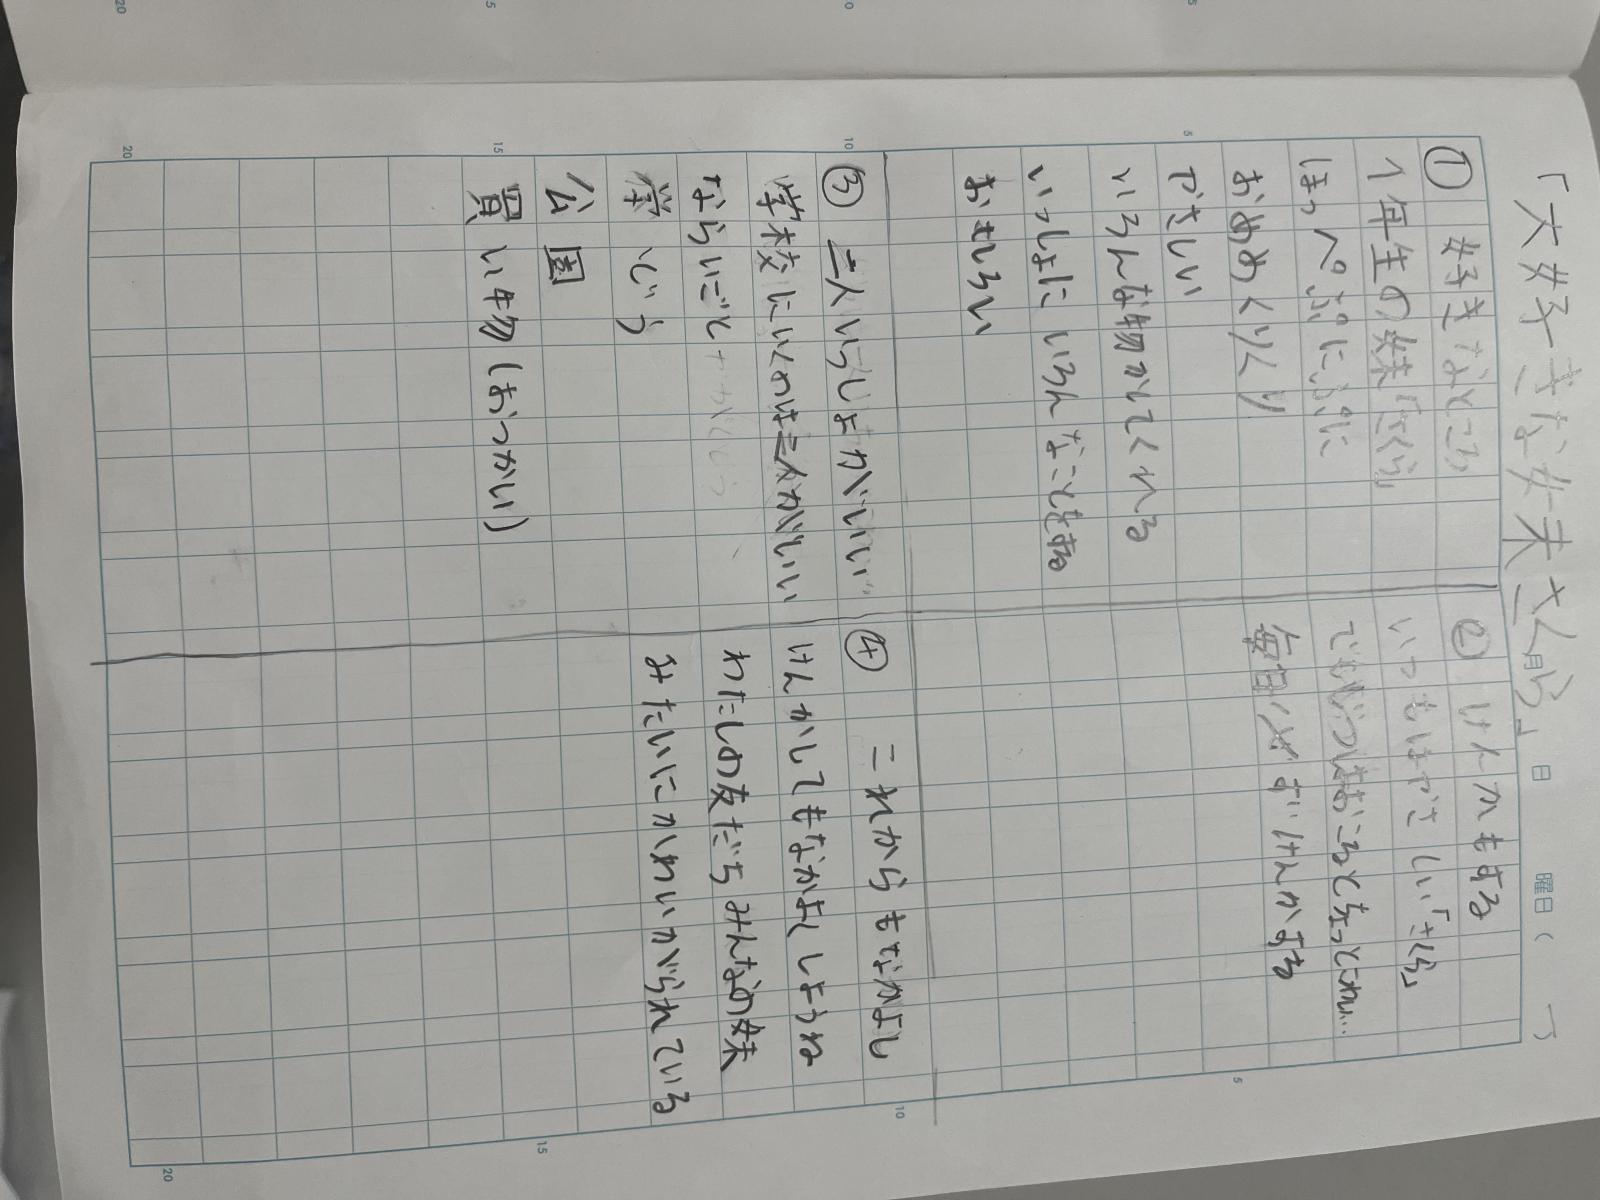 「大好きな妹さくら」
日 曜日(
)
① 好きなところ
1年生の妹「さくら」
ほっぺぷにぷに
おめめくりくり
やさしい
いろんな物かしてくれる
いっしょにいろんなことをする
おもしろい
② けんかもする
いつもはやさしい「さくら」
でもじつはおこるとちょっとこわい…
毎日かならずけんかする
③ 二人いっしょがいい
学校にいくのは二人がいい
ならいごと
学どう
公園
買い物(おつかい)
④ これからもなかよし
けんかしてもなかよくしようね
わたしの友だちみんなの妹
みたいにかわいがられている
5
10
15
20
5
10
15
20